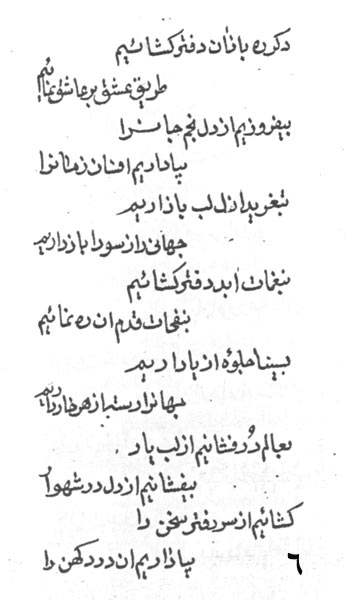 دکر ره با فان دفتر کشائیم
طریق عشق بر عاشق نمائیم
بیفروزیم از دل نجم جانرا
بپا داریم افنان زمانرا
بتغرید ازل لب باز داریم
جهانی را ز سودا باز داریم
بنغمات ابد دفتر کشائیم
بنفحات قدم ان ره نمائیم
بسینا جلوه از با داریم
بها نرا رسته از
بعالم در فشانیم از لب یار
بیفشانیم از دل در شهوار
کشائیم از سر دفتر سخن را
بپا داریم ان درد کهن را
٦